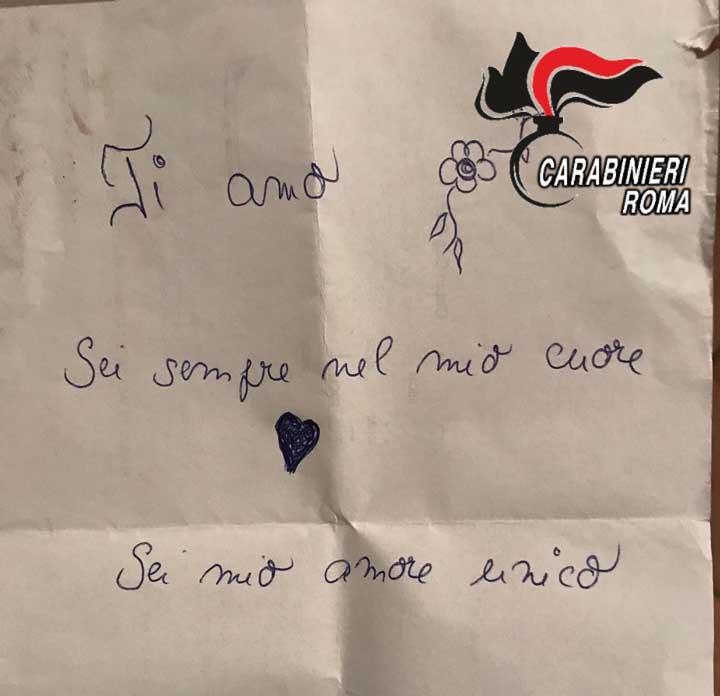 Ti amo
CARABINIERI
ROMA
Sei sempre nel mio cuore
Sei mio amore unico